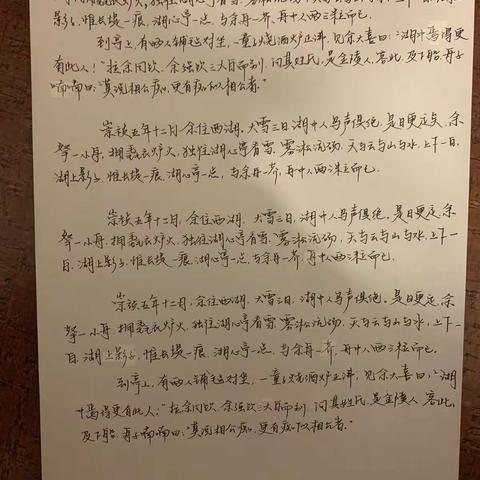 影子，惟长堤一痕，湖心亭一点，与余舟一芥，舟中人两三粒而已。
到亭上，有两人铺毡对坐，一童子烧酒炉正沸，见余大喜曰：“湖中焉得更
有此人！”拉余同饮，余强饮三大白而别，问其姓氏，是金陵人，客此，及下船，舟子
喃喃曰：“莫说相公痴，更有痴似相公者。”
崇祯五年十二月，余住西湖，大雪三日，湖中人鸟声俱绝，是日更定矣，余
拏一小舟，拥毳衣炉火，独往湖心亭看雪，雾凇沆砀，天与云与山与水，上下一白，
湖上影子，惟长堤一痕，湖心亭一点，与余舟一芥，舟中人两三粒而已。
崇祯五年十二月，余住西湖，大雪三日，湖中人鸟声俱绝，是日更定，余
拏一小舟，拥毳衣炉火，独往湖心亭看雪，雾凇沆砀，天与云与山与水，上下一
白，湖上影子，惟长堤一痕，湖心亭一点，与余舟一芥，舟中人两三粒而已。
崇祯五年十二月，余住西湖，大雪三日，湖中人鸟声俱绝。是日更定，余
拏一小舟，拥毳衣炉火，独往湖心亭看雪，雾凇沆砀，天与云与山与水，上下一
白，湖上影子，惟长堤一痕，湖心亭一点，与余舟一芥，舟中人两三粒而已。
到亭上，有两人铺毡对坐，一童子烧酒炉正沸，见余大喜曰：“湖
中焉得更有此人！”拉余同饮，余强饮三大白而别，问其姓氏，是金陵人，客此，
及下船，舟子喃喃曰：“莫说相公痴，更有痴似相公者。”